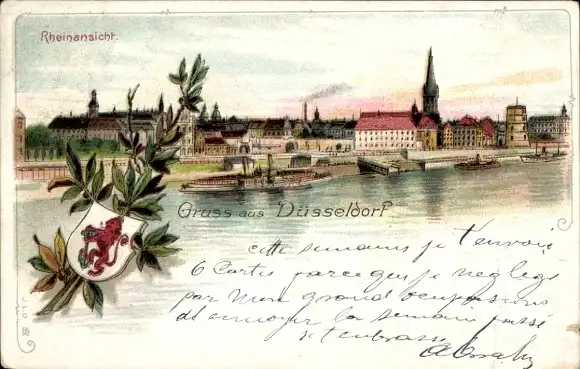 Rheinansicht.
Gruss aus Düsseldorf
cette semaine je t'envoie
6 Cartes parceque je néglege
par mon grand
d'envoyer la semaine passé
je t'embrasse